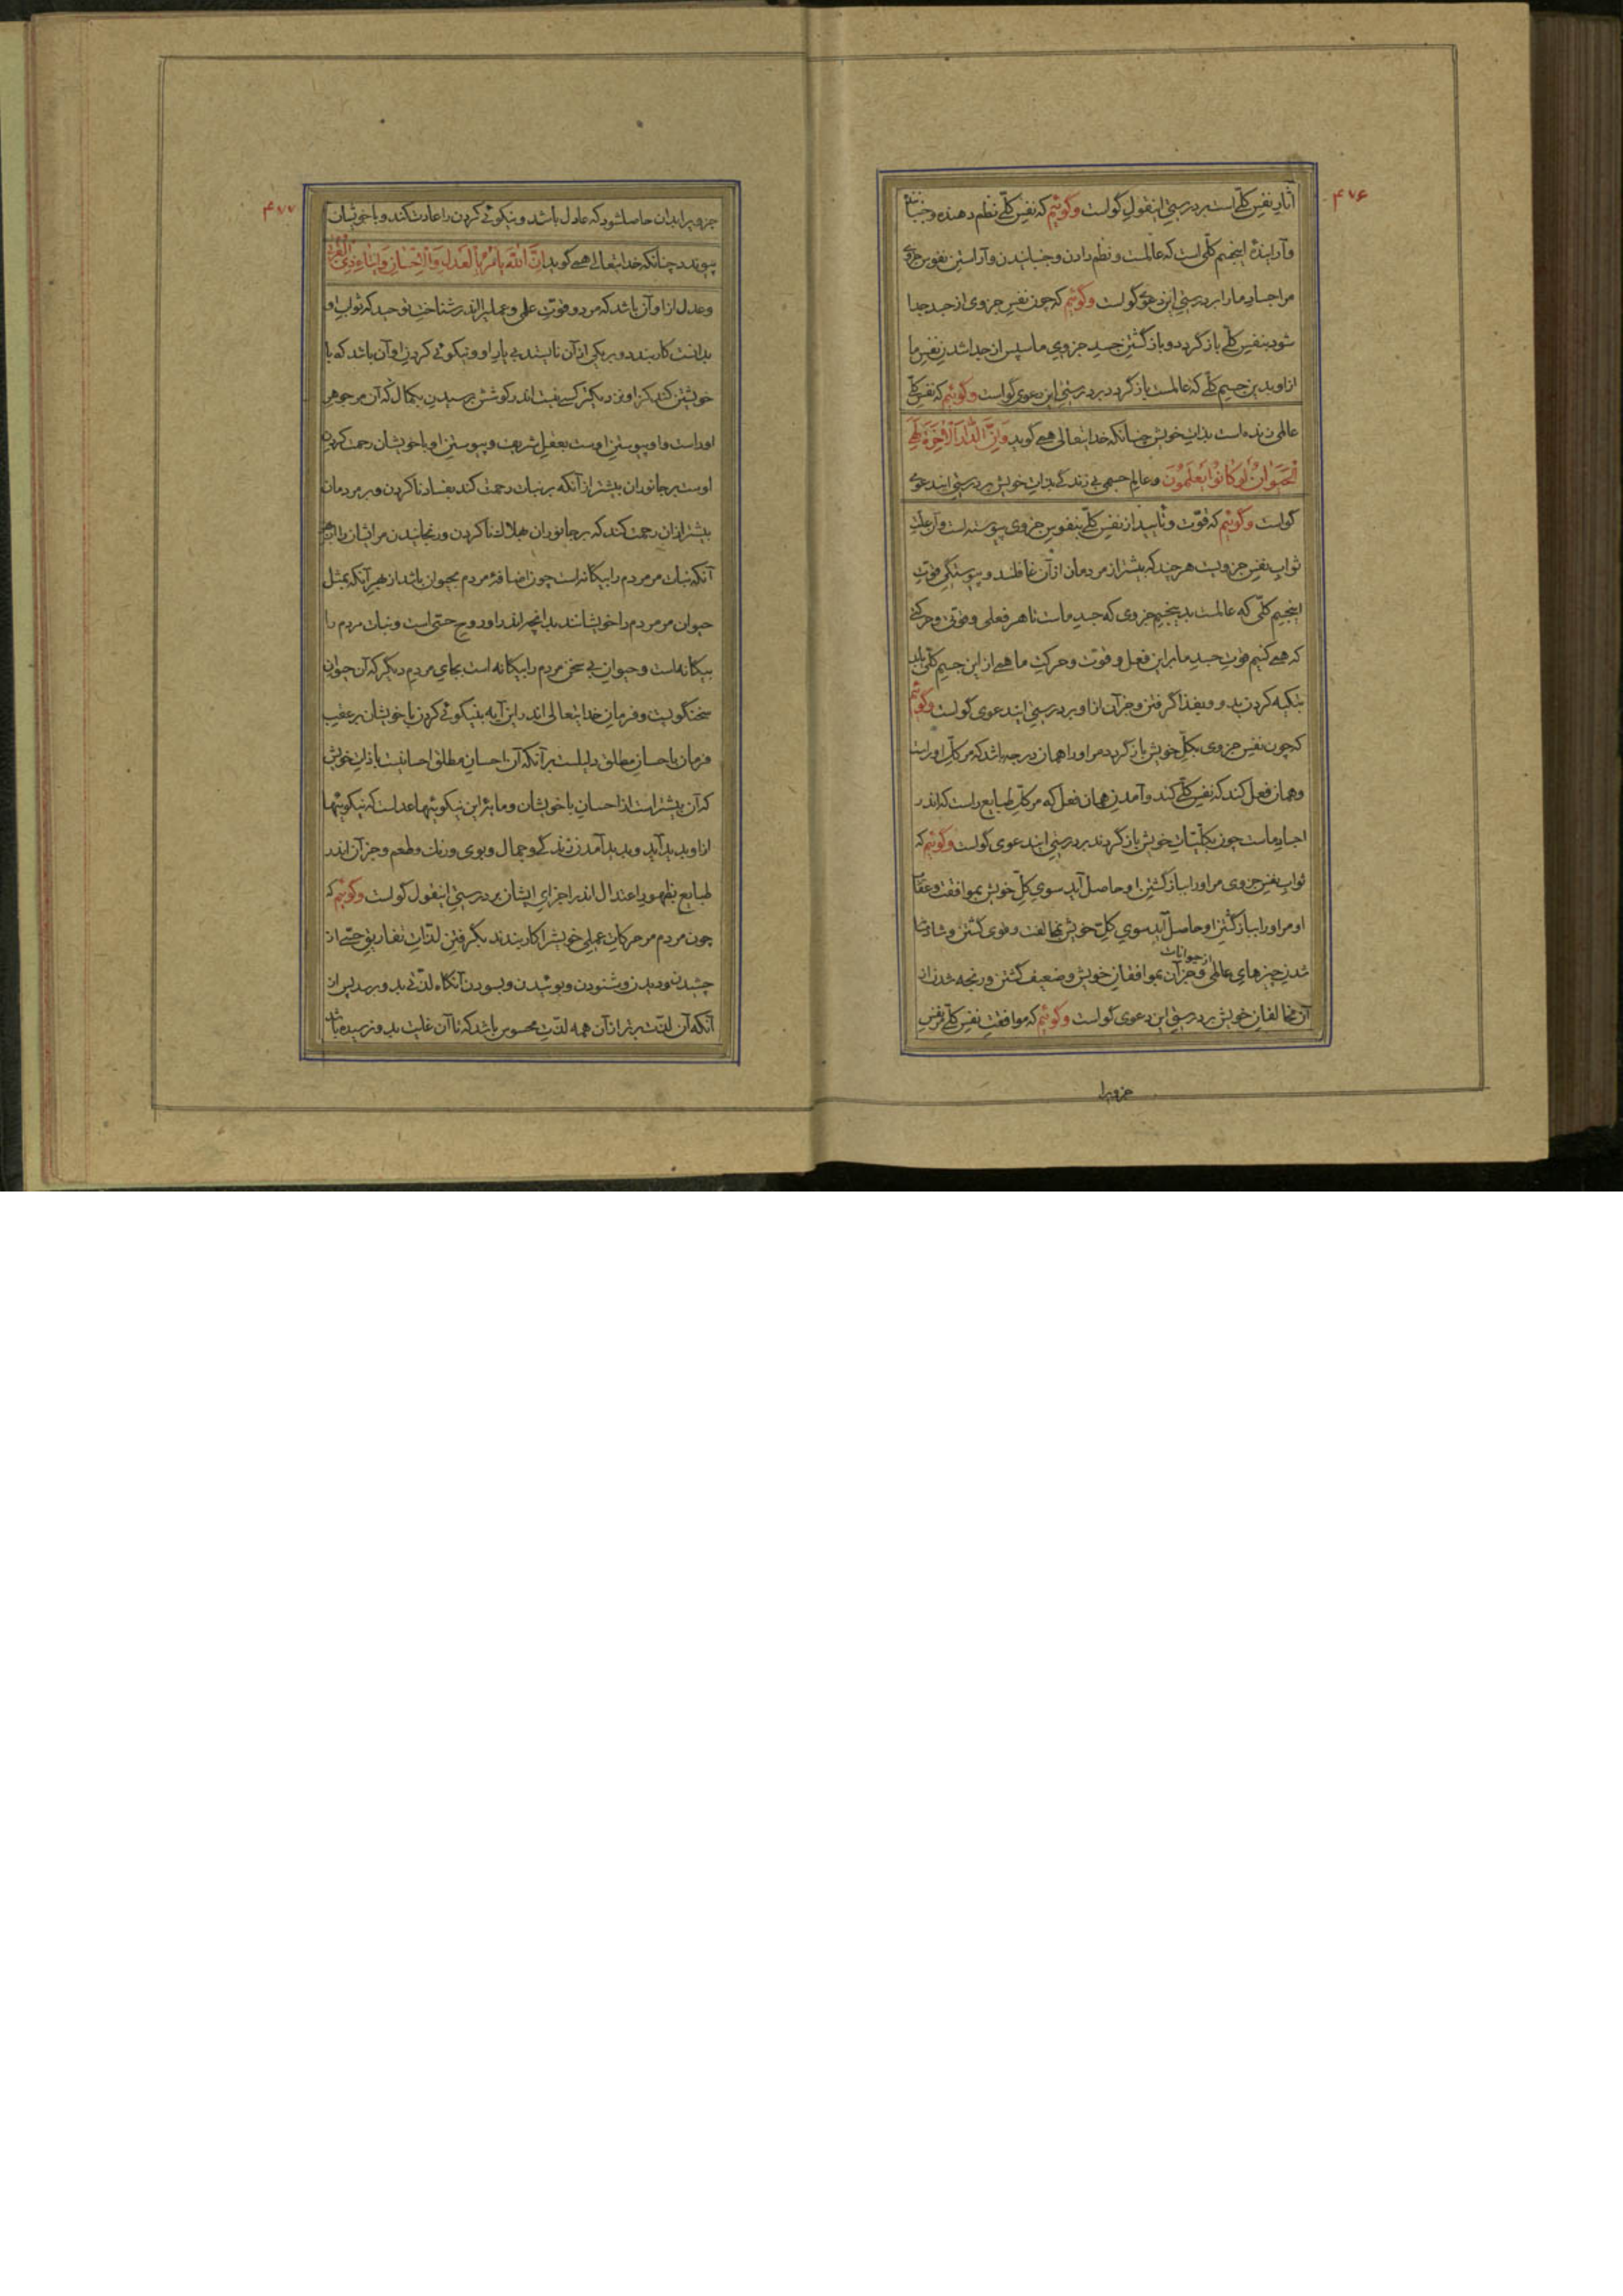 ۴۷۶
آثار نفس کلّی است بر درستی اینقول گواست وگوئیم که نفس کلّی نظم دهنده و جنباننده
و آراینده اینجسم کلّی است که عالمست و نظم دادن و جنبانیدن و آراستن نفوس جزوی
مر اجساد ما را بر درستی این دعوی گواست وگوئیم که چون نفس جزوی از جسد جدا
شود بنفس کلّی باز گردد و باز گشتن جسد جزوی ما سپس از جدا شدن نفس ما
از او بدین جسم کلّی که عالمست باز گردد بر درستی این دعوی گواست وگوئیم که نفس کلّی
عالمی زنده است بذات خویش چنانکه خدایتعالی همی گوید وَاِنَّ الدَّارَ الْآخِرَةَ لَهِیَ
الْحَیَوانُ لَوْ کانُوا یَعْلَمُونَ و عالم جسمی بی زندگی بذات خویش بر درستی ایندعوی
گواست وگوئیم که قوّت و تأیید از نفس کلّی بنفوس جزوی پیوسته است و آن علت
ثواب نفس جزویست هر چند که بیشتر از مردمان از آن غافلند و پیوستگی قوت
اینجسم کلّی که عالمست بدینجسم جزوی که جسد ماست تا هر فعلی و قوتی و حرکتی
که همی کنیم قوت جسد ما بر این فعل و قوت و حرکت ما همی از این جسم کلّی باید
بتکیه کردن بدو و غذا گرفتن و جز آن از او بر درستی ایندعوی گواست وگوئیم
که چون نفس جزوی بکلّ خویش باز گردد مر او را همان درجه باشد که مر کلّ او راست
و همان فعل کند که نفس کلّی کند و آمدن همان فعل که مر کلّ طبایع راست که اندر
اجساد ماست چون بکلّیّات خویش باز گردند بر درستی ایندعوی گواست وگوئیم که
ثواب نفس جزوی مر او را بباز گشتن او حاصل آید سوی کلّ خویش بموافقت و عقاب
او مر او را بباز گشتن او حاصل آید سوی کلّ خویش بمخالفت و قوی گشتن و شادمانه
شدن چیزهای عالمی و جز آن از حیوانات بموافقان خویش و ضعیف گشتن و رنجه شدن از
آن مخالفان خویش بر درستی این دعوی گواست وگوئیم که موافقت نفس کلّی مر نفس
جزویرا
۴۷۷
جزویرا بدان حاصلشود که عادل باشد و نیکوئی کردن را عادت کند و با خویشان
پیوندد چنانکه خدایتعالی همی گوید اِنَّ اللّهَ یَأْمُرُ بِالْعَدْلِ وَالْاِحْسانِ وَاِیتاءِ ذِی الْقُرْبی
و عدل از او آن باشد که مر دو قوّت علمی و عملیرا اندر شناخت توحید که ثواب او
بدانست کار بندد و بر یکی از آن نایستد بی یار او و نیکوئی کردن او آن باشد که با
خویشتن کند کز او نزدیکتر کسی نیست اندر کوشش برسیدن بکمال که آن مر جوهر
او راست و او پیوستن اوست بعقل شریف و پیوستن او با خویشان رحمت کردن
اوست بر جانوران بیشتر از آنکه بر نبات رحمت کند بفساد ناکردن و بر مردمان
بیشتر از آن رحمت کند که بر جانوران هلاک ناکردن و رنجانیدن مر ایشان را
آنکه نبات مر مردم را بیگانه است چون اضافۀ مردم بحیوان باشد از بهر آنکه بمثل
حیوان مر مردم را خویشانند بدانچه اندر او روح حسّی است و نبات مردم را
بیگانه است و حیوان بی سخن مردم را بیگانه است بجای مردم دیگر که آن حیوان
سخنگویست و فرمان خدایتعالی اندر این آیه بنیکوئی کردن با خویشان بر عقب
فرمان باحسان مطلق دلیلست بر آنکه آن احسان مطلق احسانیست با ذات خویش
که آن بیشتر است از احسان با خویشان و مایۀ این نیکوئیها عدلست که نیکوئیها
از او پدید آید و پدید آمدن زندگی و جمال و بوی و رنگ و طعم و جز آن اندر
طبایع بظهور اعتدال اندر اجزای ایشان بر درستی اینقول گواست وگوئیم که
چون مردم مر حرکات عملی خویشرا کار بندد بگرفتن لذّات تفاریق حسّی از
چشیدن و دیدن و شنودن و بوئیدن و بسودن آنگاه لذّتی بدو رسد پس از
آنکه آن لذّت برتر از آن همه لذّت محسوس باشد که تا آن غایت بدو نرسیده باشد